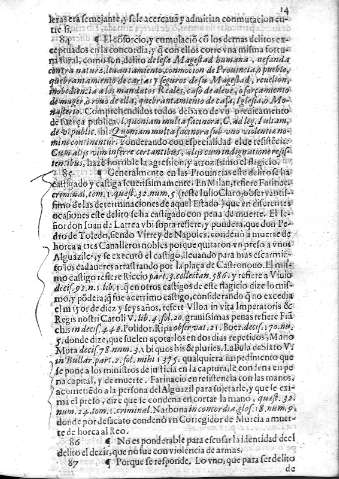 14
leras era semejante, y se le acercaua y admitian conmutacion en-
tre si.
84 ¶ El consorcio, y cumulaciõ cõ los demas delitos ex
ceptuados en la concordia, y q̃ con ellos corre vna misma fortu-
na foral, como son, delito de lesa Magestad humana, nefando
contra natura, leuantamiento, conmocion de Prouincia, o pueblo,
quebrantamiento de cartas y seguros de su Magestad, reuelion,
inobediencia a los mandatos Reales, caso de aleue, o forçamiento
de muger, o robo de ella, quebrantamiento de casa, Iglesia, o Mo-
nasterio. Comprehendidos todos debaxo de vn predicamento
de fuerça publica, quoniam multa facinora, C. ad leg. Iuliam,
de vi public. ibi: Quoniam multa facinora sub vno violentiæ no-
mine continentur. Ponderando con especialidad el de resistẽcia:
Cum alijs vim inferre certantibus, alijs cum indignatione resis-
tentibus, haze horrible la agresion, y atrocissimo el flagicio.
85 ¶ Generalmente en las Prouincias este delito se ha
castigado y castiga seuerissimamente. En Milan, refiere Farinacio
criminal. tom. 1. quæst. 32. num. 5. (teste Iulio Claro, obseruantis-
simo de las determinaciones de aquel Estado) que en diferentes
ocasiones este delito se ha castigado con pena de muerte. El se-
ñor don Iuan de Larrea vbi supra refiere, y pondera, que don Pe-
dro de Toledo, siendo Virrey de Napoles, condenò a muerte de
horca a tres Caualleros nobles porque quitaron vn preso a vnos
Alguaziles, y se executò el castigo, lleuando para mas escarmien-
to los cadaueres arrastrando por la plaça de Castronouo. El mis-
mo castigo refiere Riccio part. 3. collectan. 586. y refiere a Viuio
decis. 92. n. 1. lib. 1. q̃ en otros castigos de este flagicio dize lo mis-
mo, y põdera, q̃ fue acerrimo castigo, considerando q̃ no excedia
el menor de diez y seys años, refert Villoa in vita Imperatoris &
Regis nostri Caroli V. lib. 4. fol. 20. grauissimas penas refiere Frã-
chis in decis. 448. Polidor. Ripa obseruat. 21. Boer. decis. 170. nu.
5. donde dize, que suelen açotarlos en dos dias repeticos, Mario
Mota decis. 78. num. 3. vbi pluribus & plures. La bula de Pio V.
in Bullar. part. 2. fol. mihi 175. qualquiera impedimento que
se pone a los ministros de justicia en la captura, le condena en pe-
na capital, y de muerte. Farinacio en resistencia con las manos,
acometiendo a la persona del Alguazil para sujetarle, y que le exi-
ma el preso, dize que le condenan en cortar la mano, quæst. 32.
num. 24. tom. 1. criminal. Narbona in concordia glos. 18. num. 9.
donde por desacato condenò vn Corregidor de Murcia a muer-
te de horca al Reo.
86 ¶ No es ponderable para escusar la identidad de el
delito el dezir, que no fue con violencia de armas.
87 ¶ Porque se responde. Lo vno, que para ser delito
de